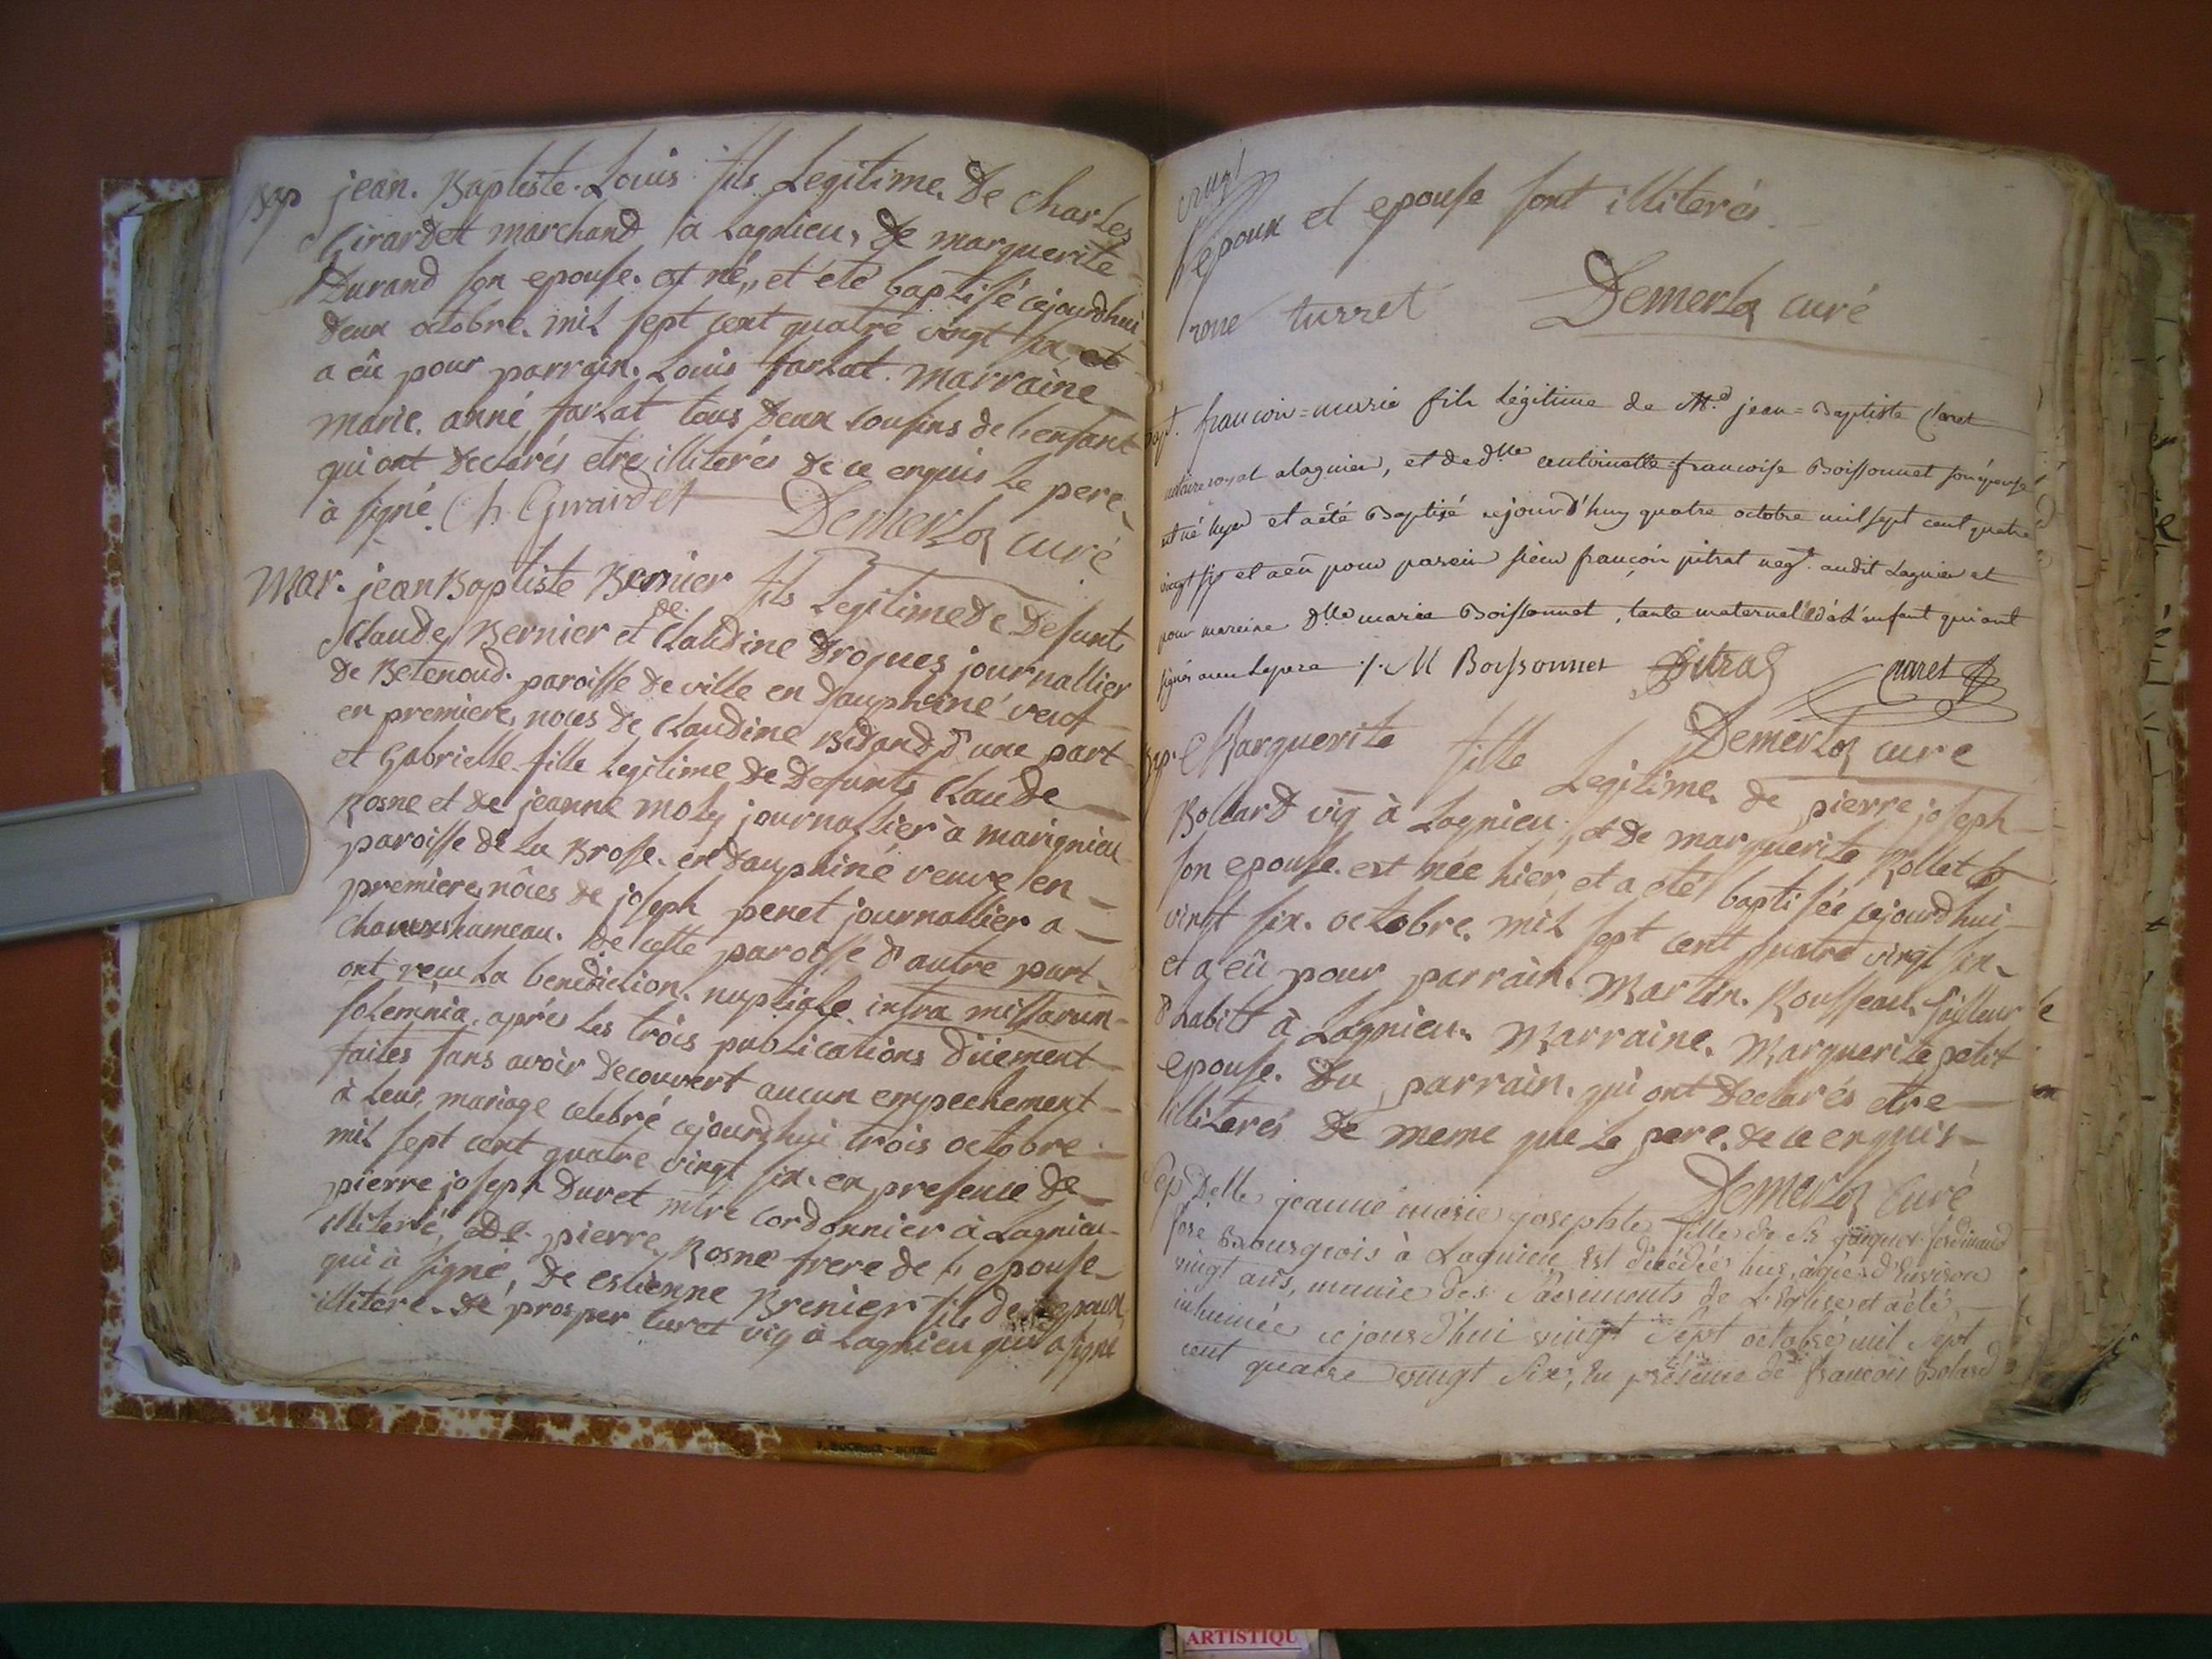 Bap jean. Baptiste. Louis fils Legitime. De Charles
Girardet marchand à Lagnieu, De marguerite
Durand son epouse. est né, et eté baptisé cejourdhui
deux octobre. mil sept cent quatre vingt six, et
a eû pour parrain. Louis farlat. marraine
marie. anne farlat tous deux cousins de l'enfant
qui ont declarés etre illiterés de ce enquis le pere
à signé. Ch Girardet Demerloz curé
Mar. jean Baptiste Bernier fils Legitime de Defunt
Claude Bernier et de Claudine Droques journallier
de Betenoud. paroisse de ville en dauphiné veuf
en premiere, noces de Claudine Bidand d'une part
et Gabrielle fille Legitime de Defunts Claude
Rosne et de jeanne moly journallier à marignieu
paroisse de La Brosse. en dauphiné veuve en
premiere, nôces de joseph penet journallier a
hameau. de cette paroisse d'autre part.
ont reçu La benediction. nuptiale intra missarum
solemnia, aprés Les trois publications düement
faites sans avoir decouvert aucun empechement
à leur mariage celebré cejourdhui trois octobre
mil sept cent quatre vingt six. en presence de
pierre joseph Duret mtre Cordonnier à Lagnieu
illiteré, De pierre Rosne frere de L'epouse
qui à signé, De estienne Brenier fils de Lepoux
illiteré. De prosper turet vig à Lagnieu qui a signé
epoux et epouse sont illiterés.
rone turret Demerloz curé
bapt. francois=marie fils Légitime de Md. jean=Baptiste Claret
notaire royal a lagnieu, et de dlle antoinette=francoise Boissonnet son épouse
est né hyer et a été Baptizé cejourd'huy quatre octobre mil sept cent quatre
vingt six et a eû pour parein sieur françois pitrat negt. audit Lagnieu et
pour mareine dlle marie Boissonnet, tante maternelle de L'enfant qui ont
signés avec le pere ./. M Boissonnet Pitrat Claret
Demerloz curé
Bap. Marguerite fille Legitime. de pierre joseph
Bollard vig à Lagnieu, et de marguerite Rollet
son epouse. est née hier et a eté baptisée cejourdhui
vingt six. octobre. mil sept cent quatre vingt six.
et a eû pour parrain. Martin. Rousseau, tailleur
d'habitt à Lagnieu. Marraine. Marguerite petit
epouse. du parrain. qui ont declarés etre
illiterés de meme que Le pere. de ce enquis
Demerloz Curé
Sep Delle jeanne marie josephte fille de Sr jacques ferdinand
Bourgeois à Lagnieu est décédée hier, agée d'Environ
vingt ans, munie des Sacrements de L'Eglise et a été
inhumée cejourd'hui vingt Sept octobre mil Sept
cent quatre vingt Six, En présence de francois Bolard
ARTISTIQU